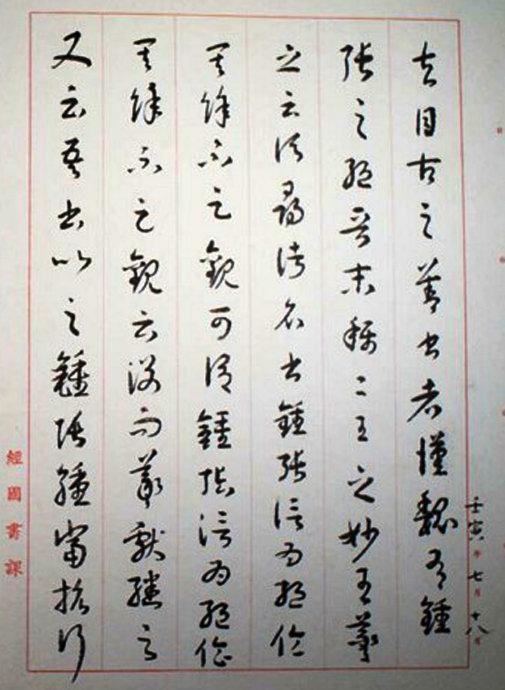 夫自古之善書者漢魏有鍾
張之絕晉末稱二王之妙王羲
之云頃尋諸名書鍾張信為絕倫
其餘不足觀可謂鍾張信為絕倫
其餘不足觀云沒而羲獻繼之
又云吾書比之鍾張鍾當抗行
壬寅年七月十八日
經國書課